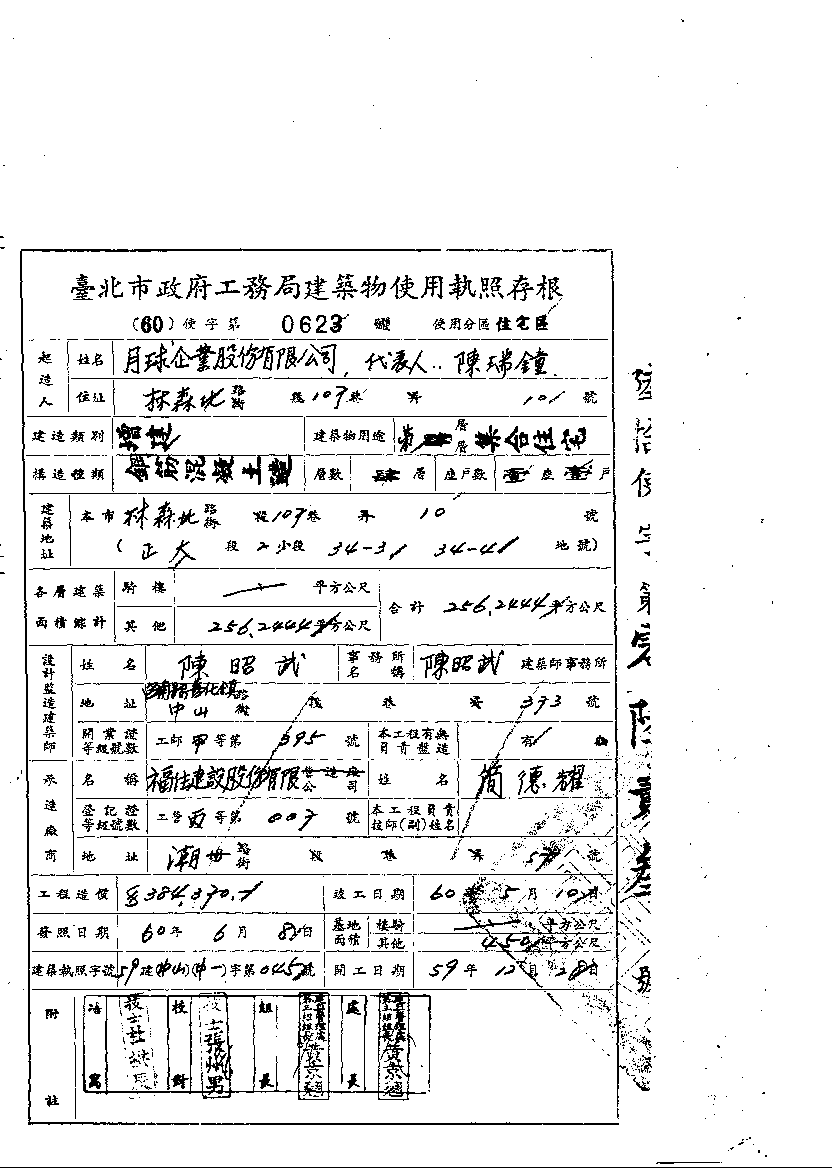 臺北市政府工務局建築物使用執照存根
(60)使字第 0623 號 使用分區 住宅區
起造人 姓名 月球企業股份有限公司, 代表人..陳瑞鐘
住址 林森北 路街 段 107 巷 弄 101 號
建造類別 增建 建築物用途 層層 集合住宅
構造種類 鋼筋混凝土造 層數 肆 層 座戶數 壹 座 壹 戶
建築地址 本市 林森北 路街 段 107 巷 弄 10 號
( 正大 段 2 小段 34-31 34-41 地號)
各層建築面積總計 騎樓 平方公尺 合計 256.2444 平方公尺
其他 256.2444 平方公尺
設計監造建築師 姓名 陳昭武 事務所名稱 陳昭武 建築師事務所
地址 中山 路街 段 巷 弄 393 號
開業證等級號數 工師 甲 等第 395 號 本工程有無負責監造 有
承造廠商 名稱 福住建設股份有限公司 姓名 簡德耀
登記證等級號數 工營 丙 等第 007 號 本工程負責技師(副)姓名
地址 潮州 路街 段 巷 弄 號
工程造價 384,370. 竣工日期 60 年 5 月 10 日
發照日期 60 年 6 月 8 日 基地面積 樓騎 平方公尺
其他 450 平方公尺
建築執照字號 59 建(中山)(中一)字第 045 號 開工日期 59 年 12 月 28 日
附註 校對 組長 處長